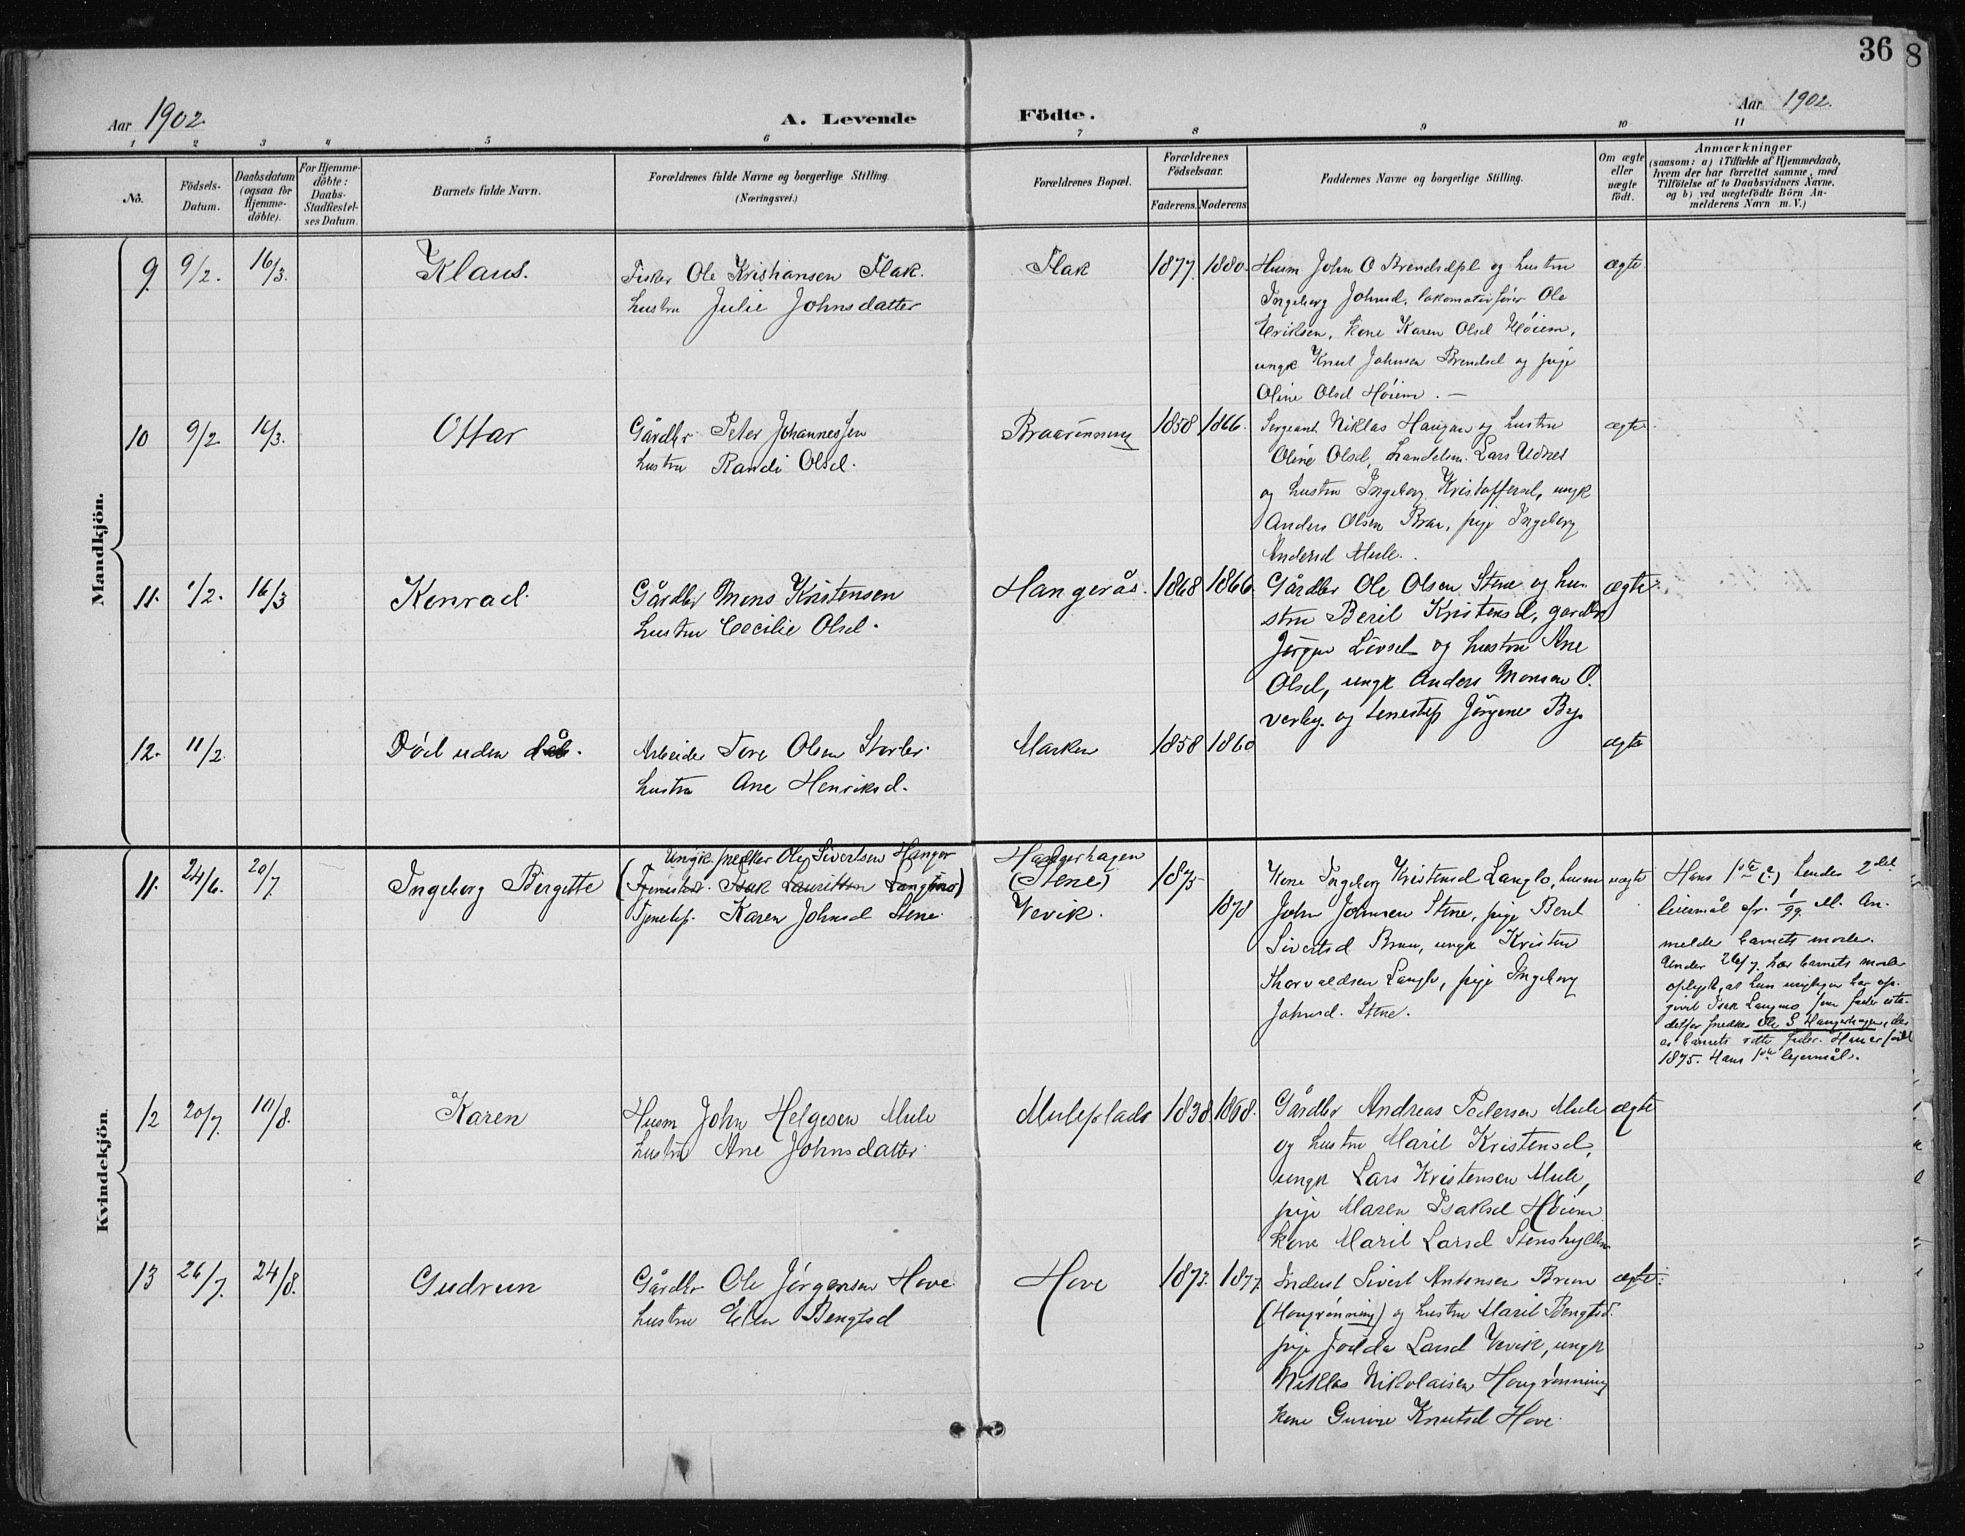 36
8
Aar 1902.
A. Levende Födte.
Aar 1902.
1 2 3 4 5 6 7 8 9 10 11
No.
Födsels-Datum.
Daabsdatum (ogsaa for Hjemme-döbte).
For Hjemme-döbte: Daabs-Stadfæstel-ses Datum.
Barnets fulde Navn.
Forældrenes fulde Navne og borgerlige Stilling.
(Næringsvei.)
Forældrenes Bopæl.
Forældrenes Födselsaar.
Faderens. Moderens.
Faddernes Navne og borgerlige Stilling.
Om ægte eller uægte födt.
Anmærkninger
(saasom: a) i Tilfælde af Hjemmedaab,
hvem der har forrettet samme, med
Tilföielse af to Daabsvidners Navne,
og b) ved uegtefödte Börn An-
melderens Navn m. V.)
Mandkjön.
9. 9/2. 16/3. Klaus.
Fisker Ole Kristiansen Flak.
hustru Julie Johnsdatter
Flak 1877. 1880.
Husm John O Brendsdpl og hustru
Ingeborg Johnsd, lokomotivfører Ole
Eriksen, kone Karen Olsd Høiem,
ungk Knut Johnsen Brendsd og pige
Oline Olsd Høiem. —
ægte
10 9/2 16/3. Ottar
Gårdbr Peter Johannessen
hustru Randi Olsd.
Braarønning 1858 1866.
Sergeant Niklas Haugan og hustru
Oline Olsd, handelsm. Lars Udnes
og hustru Ingeborg Kristoffersd, ungk
Anders Olsen Braa, pige Ingeborg
Andersd Mule.
ægte
11. 1/2. 16/3 Konrad.
Gårdbr Mons Kristensen
hustru Cecilie Olsd.
Hangerås. 1868 1866.
Gårdbr Ole Olsen Stene og hu-
stru Beril Kristensd, gardbr
Jørgen Livsd og hustru Ane
Olsd, ungk Anders Monsen O.
verby og tenestep Jørgine By.
ægte
12. 11/2. Død uden dåb.
Arbeider Tore Olsen Storler.
hustru Ane Henriksd.
Marken 1858 1860
ægte
Kvindekjön.
11. 24/6. 20/7 Ingeborg Bergitte
Ungk. snedker Ole Sivertsen Hanger
(Tjenestek. Isak Lauritsen Langmo)
Tjenestep. Karen Johnsd Stene.
Hangerhagen
(Stene)
Vevik.
1875
1878
Kone Ingeborg Kristensd Langlo, husm
John Johnsen Stene, pige Beret
Sivertsd Bruu, ungk Kristen
Thorvaldsen Langlo, pige Ingeborg
Johnsd. Stene.
uægte
Hans 1ste (?) hendes 2det
leiermål efr. 1/99 M. An-
melder barnets moder.
Under 26/7 har barnets moder
oplyst, at hun urigtigen har op-
givit Isak Langmo som fader iste-
detfor snedker Ole S Hangerhagen, der
er barnets rette fader. Han er født
1875. Hans 1ste lejermål.
12 20/7. 10/8. Karen
Husm John Helgesen Mule
hustru Ane Johnsdatter.
Muleplads 1838. 1868.
Gårdbr Andreas Pedersen Mule
og hustru Maril Kristensd,
ungk Lars Kristensen Mule,
pige Maren Isaksd Høiem
kone Maril Larsd Stenshyllen
ægte
13 26/7. 24/8. Gudrun
Gårdbr Ole Jørgensen Hove.
hustru Ellen Bengtsd
Hove 1873. 1877.
Inderst Sivert Antonsen Bruu
(Haugrønning) og hustru Maril Bengtsd.
pige Jødda Larsd Vevik, ungk
Niklas Nikolaisen Haugrønning
kone Gurine Knutsd Hove.
ægte.